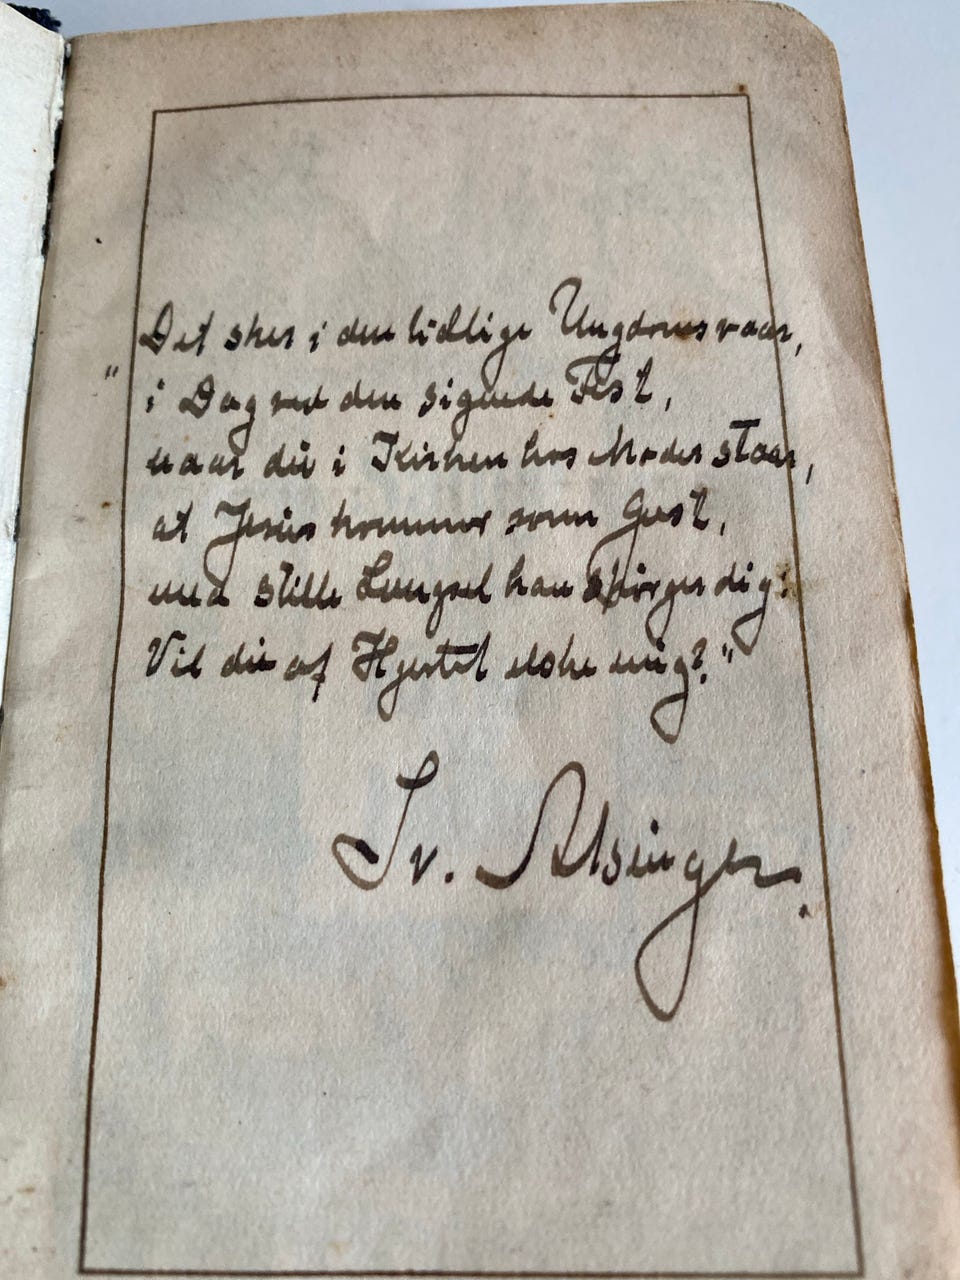 "Det sker i den lidlige Ungdomsvaar,
i Dag ved den signede Fest,
naar du i Kirken hos Moder staar,
at Jesus kommer som Gæst,
med stille Længsel han spörger dig:
Vil du af Hjertet elske mig?"
Sv. Alsinger.